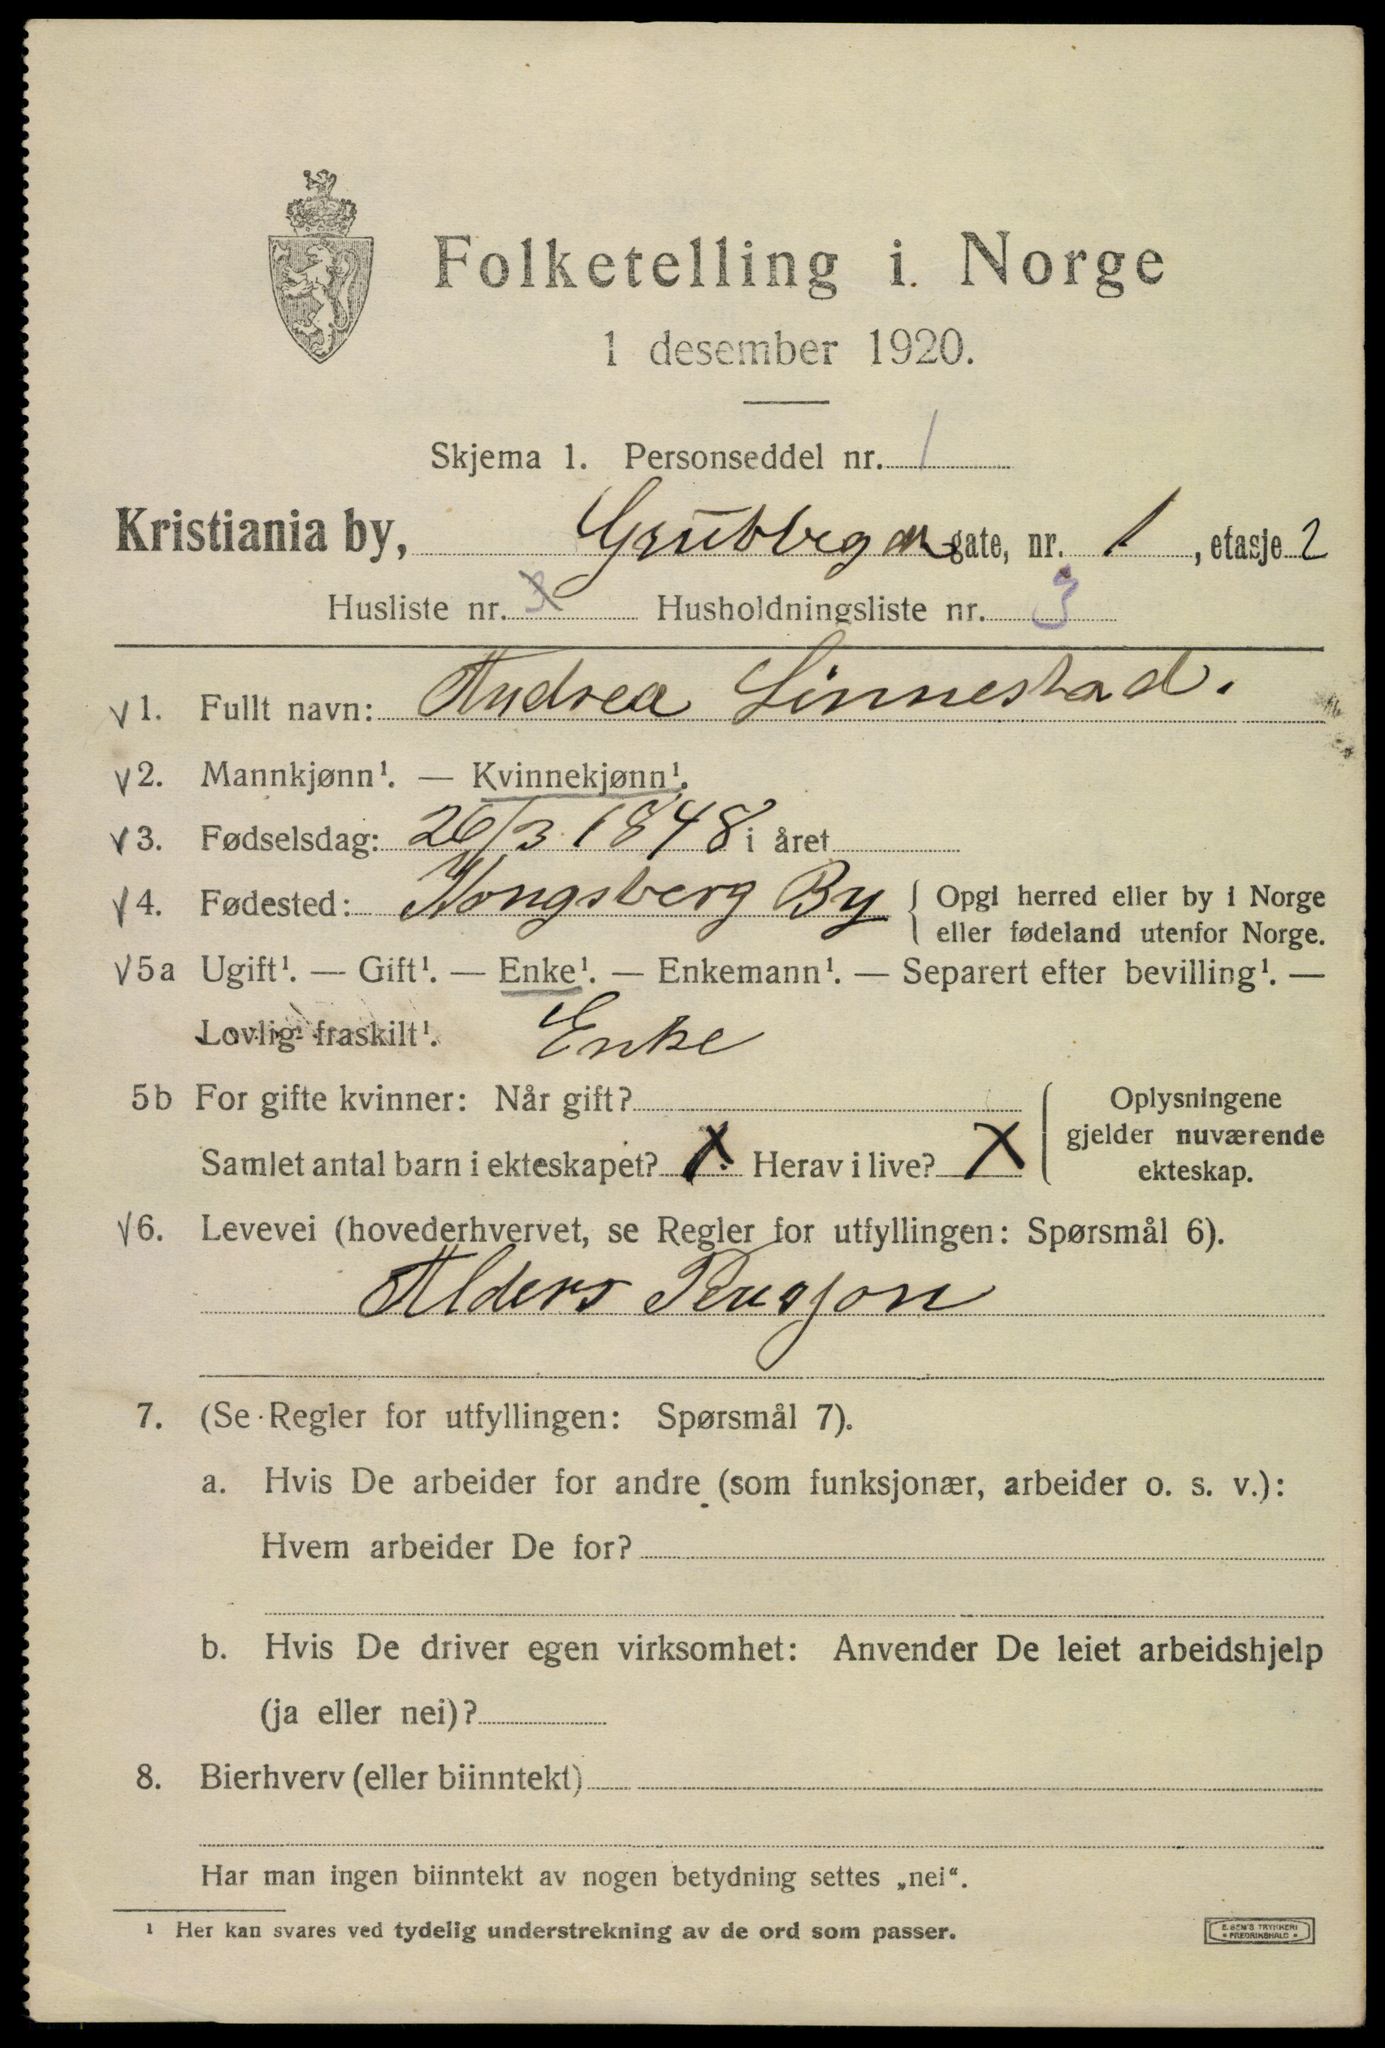 Folketelling i Norge
1 desember 1920.
Skjema 1. Personseddel nr. 1
Kristiania by, Grubbegaten gate, nr. 1, etasje 2
Husliste nr. Husholdningsliste nr. 3
√1. Fullt navn: Andrea Linnestad.
√2. Mannkjønn¹. — Kvinnekjønn¹.
√3. Fødselsdag: 26/3 1848 i året
√4. Fødested: Kongsberg By { Opgi herred eller by i Norge
eller fødeland utenfor Norge.
√5a Ugift¹. — Gift¹. — Enke¹. — Enkemann¹. — Separert efter bevilling¹. —
Lovlig fraskilt¹. Enke
5b For gifte kvinner: Når gift? { Oplysningene
gjelder nuværende
Samlet antal barn i ekteskapet? X Herav i live? X
ekteskap.
√6. Levevei (hovederhvervet, se Regler for utfyllingen: Spørsmål 6).
Alders Pensjon
7. (Se Regler for utfyllingen: Spørsmål 7).
a. Hvis De arbeider for andre (som funksjonær, arbeider o. s. v.):
Hvem arbeider De for?
b. Hvis De driver egen virksomhet: Anvender De leiet arbeidshjelp
(ja eller nei)?
8. Bierhverv (eller biinntekt)
Har man ingen biinntekt av nogen betydning settes „nei“.
¹ Her kan svares ved tydelig understrekning av de ord som passer.
E. SEM'S TRYKKERI
FREDRIKSHALD